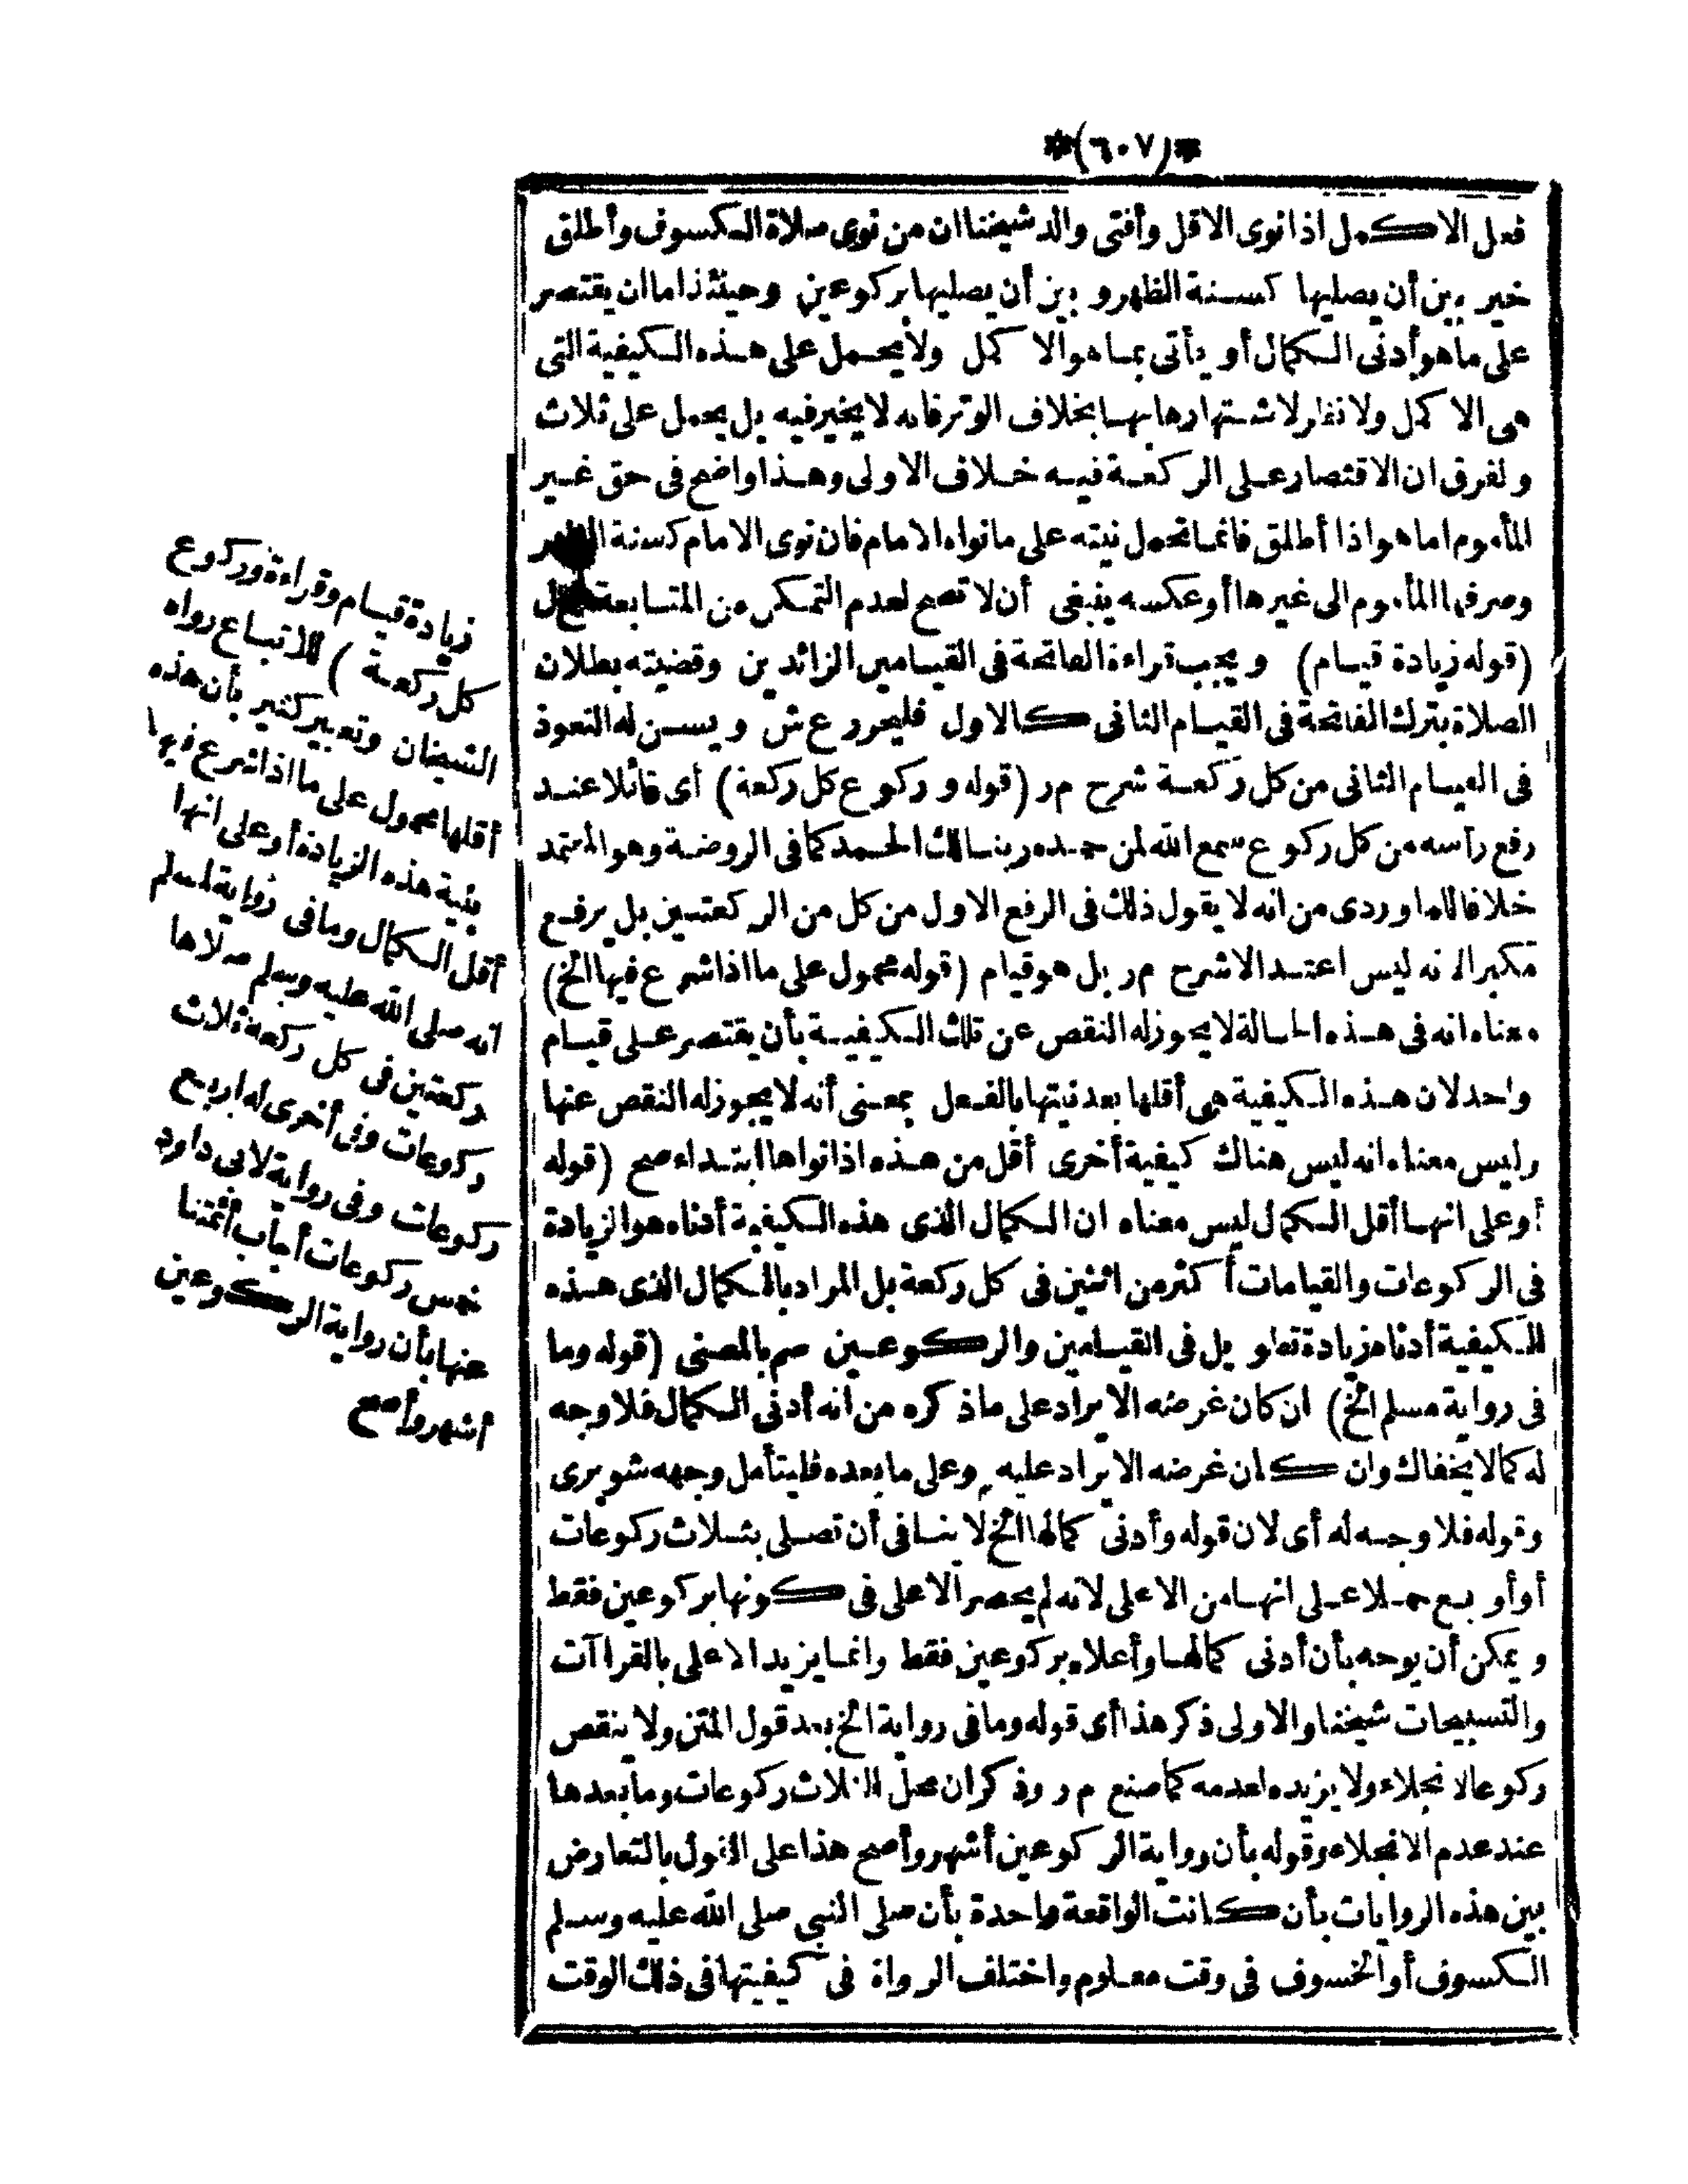 *(٦٠٧)*
فعل الاكمل اذا نوى الاقل وأفتى والد شيخنا ان من نوى صلاة الكسوف وأطلق
خير بين أن يصليها كسنة الظهر و بين أن يصليها بركوعين وحينئذ اما ان يقتصر
على ما هو أدنى الكمال أو يأتى بما هو الاكمل ولا يحمل على هذه الكيفية التى
هى الاكمل ولا نظر لاشتهارها بها بخلاف الوتر فانه لا يخير فيه بل يحمل على ثلاث
ولفرق ان الاقتصار على الركعة فيه خلاف الاولى وهذا واضح فى حق غير
المأموم اما هو اذا أطلق فانما تحمل نيته على ما نواه الامام فان نوى الامام كسنة الظهر
وصرفها المأموم الى غيرها أو عكسه ينبغى أن لا تصح لعدم التمكن من المتابعة
(قوله زيادة قيام) ويجب قراءة الفاتحة فى القيامين الزائدين وقضيته بطلان
الصلاة بترك الفاتحة فى القيام الثانى كالاول فليحرر ع ش ويسن له التعوذ
فى القيام الثانى من كل ركعة شرح م ر (قوله وركوع كل ركعة) أى قائلا عند
رفع رأسه من كل ركوع سمع الله لمن حمده ربنا لك الحمد كما فى الروضة وهو المعتمد
خلافا للماوردى من انه لا يقول ذلك فى الرفع الاول من كل من الركعتين بل يرفع
مكبرا لانه ليس اعتدالا شرح م ر بل هو قيام (قوله محمول على ما اذا شرع فيها الخ)
معناه انه فى هذه الحالة لا يجوز له النقص عن تلك الكيفية بأن يقتصر على قيام
واحد لان هذه الكيفية هى أقلها بعد نيتها بالفعل بمعنى أنه لا يجوز له النقص عنها
وليس معناه انه ليس هناك كيفية أخرى أقل من هذه اذا نواها ابتداء صح (قوله
أو على انها أقل الكمال ليس معناه ان الكمال الذى هذه الكيفية أدناه هو الزيادة
فى الركوعات والقيامات أكثر من اثنين فى كل ركعة بل المراد بالكمال الذى هذه
الكيفية أدناه زيادة تطويل فى القيامين والركوعين سم بالمعنى (قوله وما
فى رواية مسلم الخ) ان كان غرضه الايراد على ما ذكره من انه أدنى الكمال فلا وجه
له كما لا يخفاك وان كان غرضه الايراد عليه وعلى ما بعده فليتأمل وجهه شوبرى
وقوله فلا وجه له أى لان قوله وأدنى كمالها الخ لا ينافى أن تصلى بثلاث ركوعات
أو أربع حملا على انها من الاعلى لانه لم يحصر الاعلى فى كونها بركوعين فقط
ويمكن أن يوجه بأن أدنى كمالها وأعلاه بركوعين فقط وانما يزيد الاعلى بالقراآت
والتسبيحات شيخنا والاولى ذكر هذا أى قوله وما فى رواية الخ بعد قول المتن ولا ينقص
ركوعا لانجلاء ولا يزيده لعدمه كما صنع م ر وذكر ان محل الثلاث ركوعات وما بعدها
عند عدم الانجلاء وقوله بأن رواية الركوعين أشهر وأصح هذا على القول بالتعارض
بين هذه الروايات بأن كانت الواقعة واحدة بأن صلى النبى صلى الله عليه وسلم
الكسوف أو الخسوف فى وقت معلوم واختلف الرواة فى كيفيتها فى ذلك الوقت
زيادة قيام وقراءة وركوع
كل ركعة) للاتباع رواه
الشيخان وتعبير كثير بأن هذه
أقلها محمول على ما اذا شرع فيها
بنية هذه الزيادة أو على انها
أقل الكمال وما فى رواية لمسلم
انه صلى الله عليه وسلم صلاها
ركعتين فى كل ركعة ثلاث
ركوعات وفى أخرى له أربع
ركوعات وفى رواية لابى داود
خمس ركوعات أجاب أئمتنا
عنها بأن رواية الركوعين
أشهر وأصح